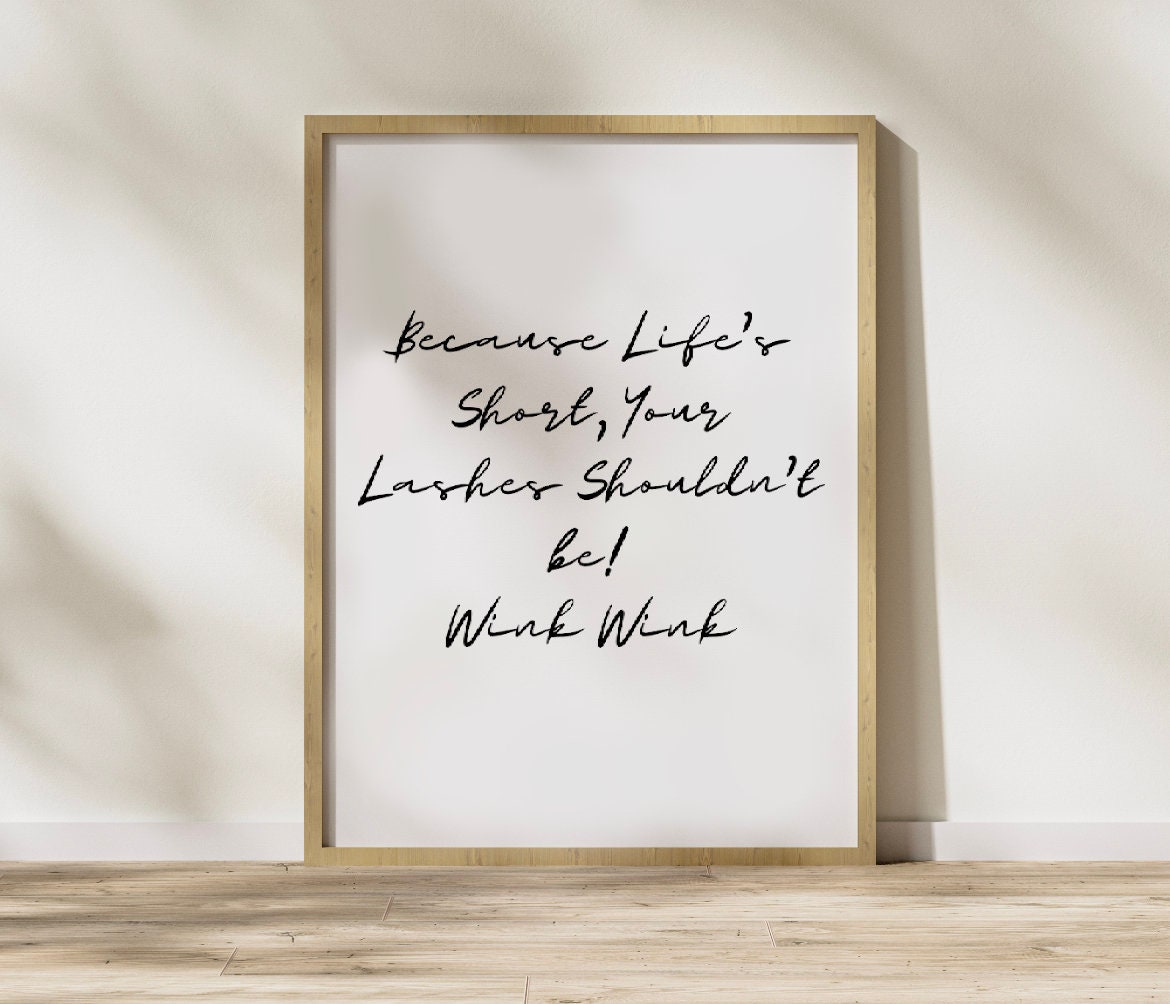 Because Life's
Short, Your
Lashes Shouldn't
be!
Wink Wink